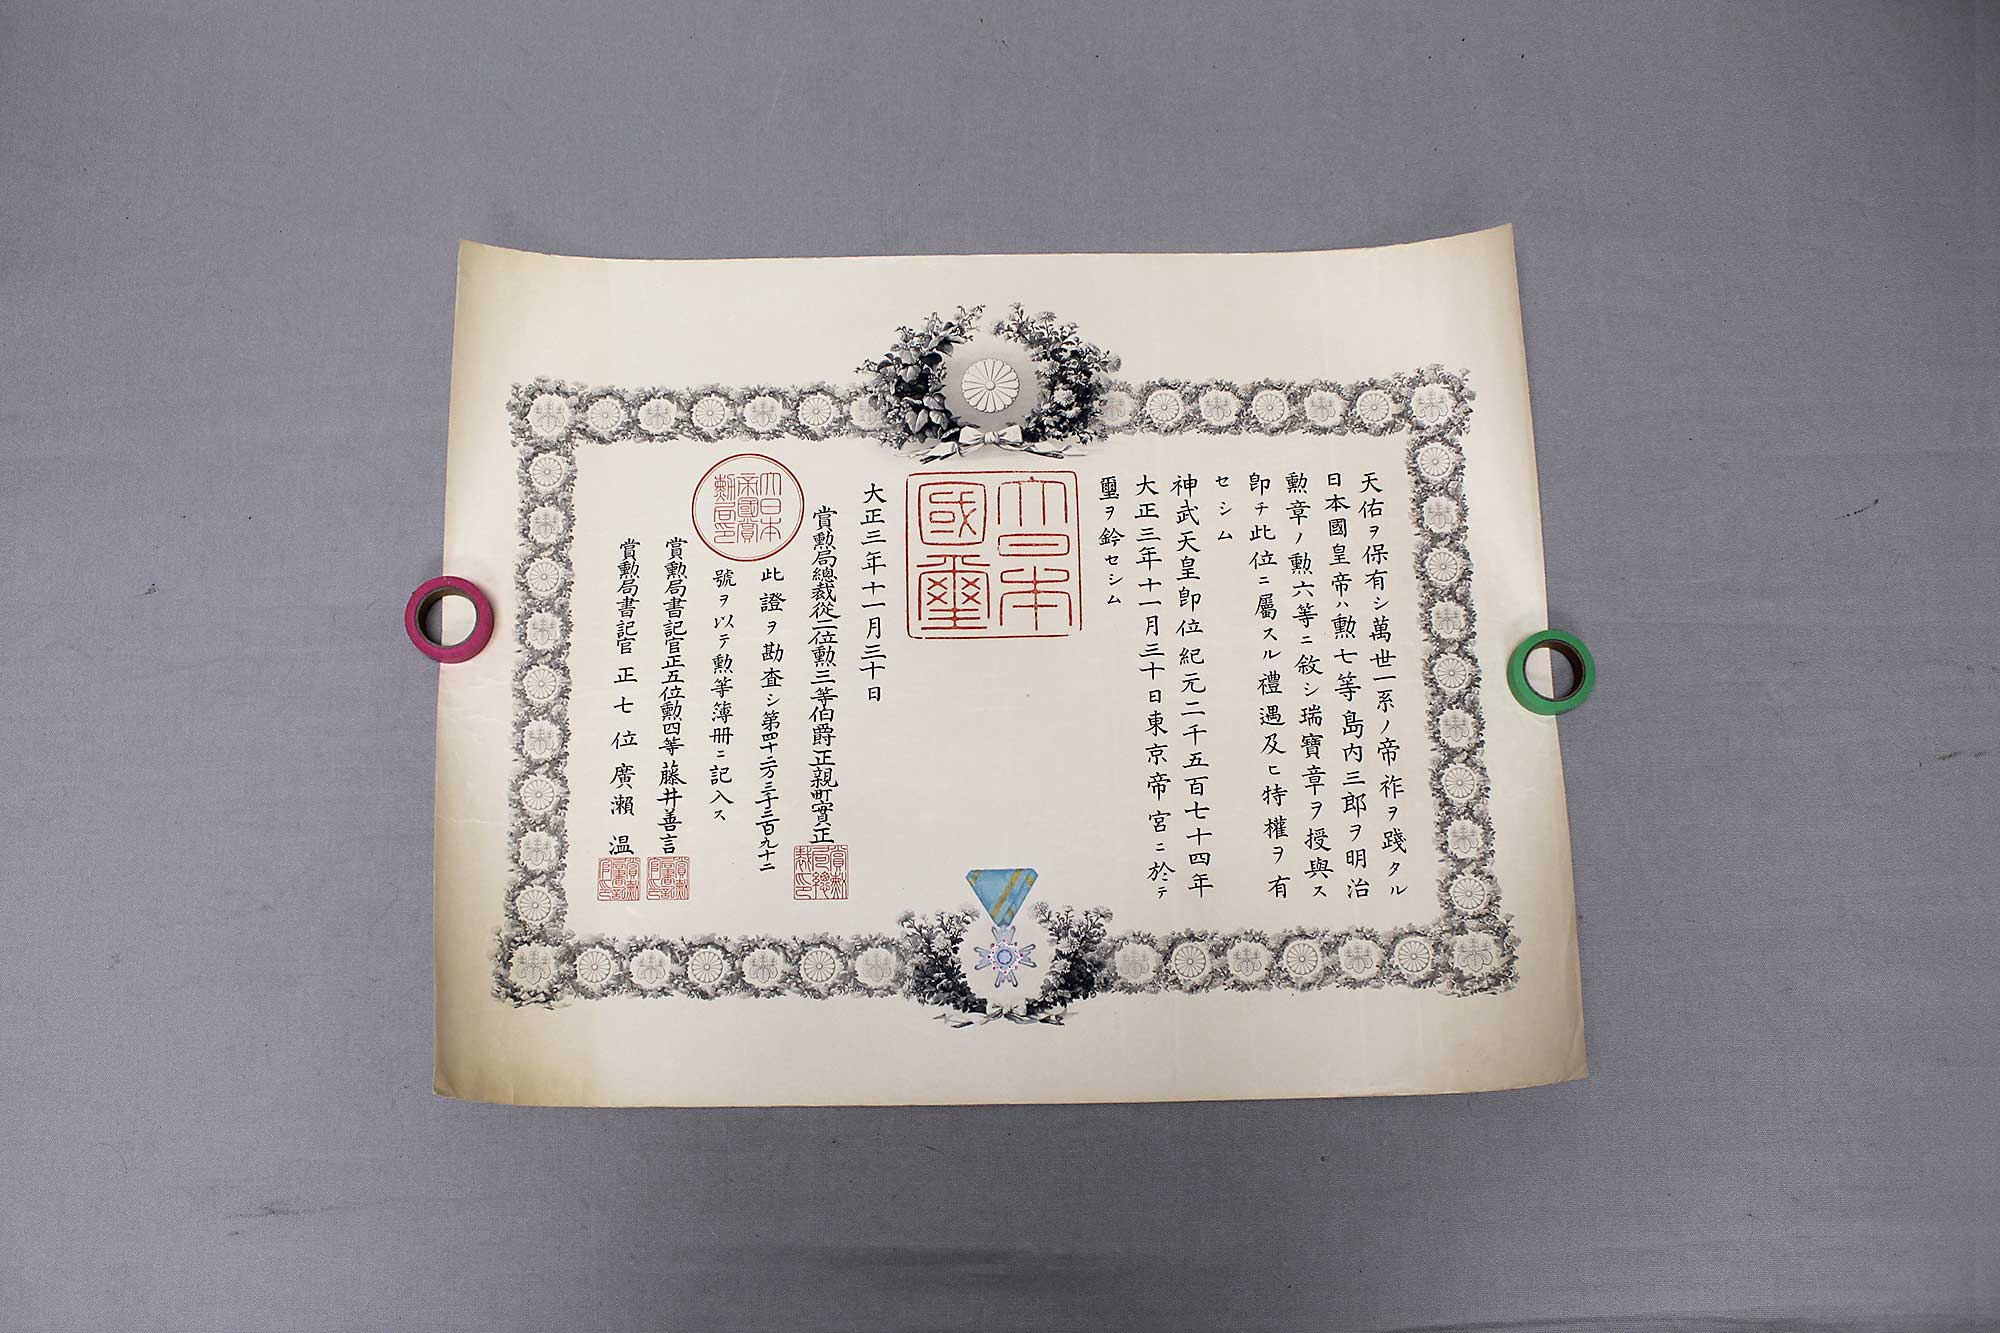 天佑ヲ保有シ萬世一系ノ帝祚ヲ踐タル
日本國皇帝ハ勲七等島内三郎ヲ明治
勲章ノ勲六等ニ敘シ瑞寶章ヲ授與ス
即チ此位ニ屬スル禮遇及ヒ特權ヲ有
セシム
神武天皇即位紀元二千五百七十四年
大正三年十一月三十日東京帝宮ニ於テ
璽ヲ鈐セシム
大日本
國璽
大正三年十一月三十日
賞勲局總裁從二位勲三等伯爵正親町實正
賞勲局總裁印
大日本帝國賞勲局印
此證ヲ勘査シ第四十二万三千三百九十二
號ヲ以テ勲等簿冊ニ記入ス
賞勲局書記官正五位勲四等藤井善言
賞勲局書記官正七位廣瀬温